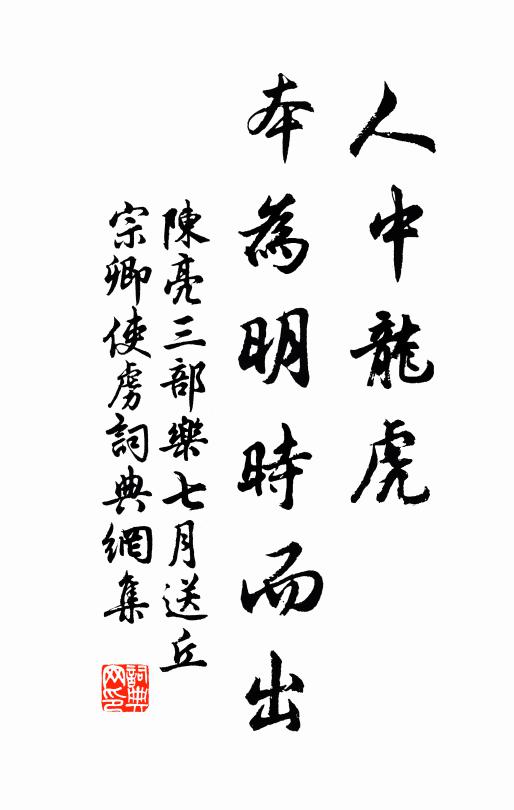 人中龍虎
本為明時而出
陳亮三部樂七月送丘
宗卿使虜詞典網集
詞典
网印